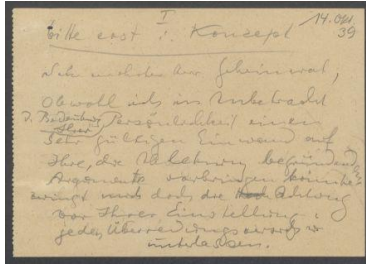 I
14. Okt
39
Bitte erst i. Konzept
Geheimrat,
Obwohl ich in Anbetracht
d. Bedeutung Ihrer Persönlichkeit einen
sehr gültigen Einwand auf
Ihre, die Ablehnung begründend
Argumente vorbringen könnte
zwingt mich doch die Achtung
vor Ihrer Einstellung,
jeden Überredungsversuch
unterlassen.